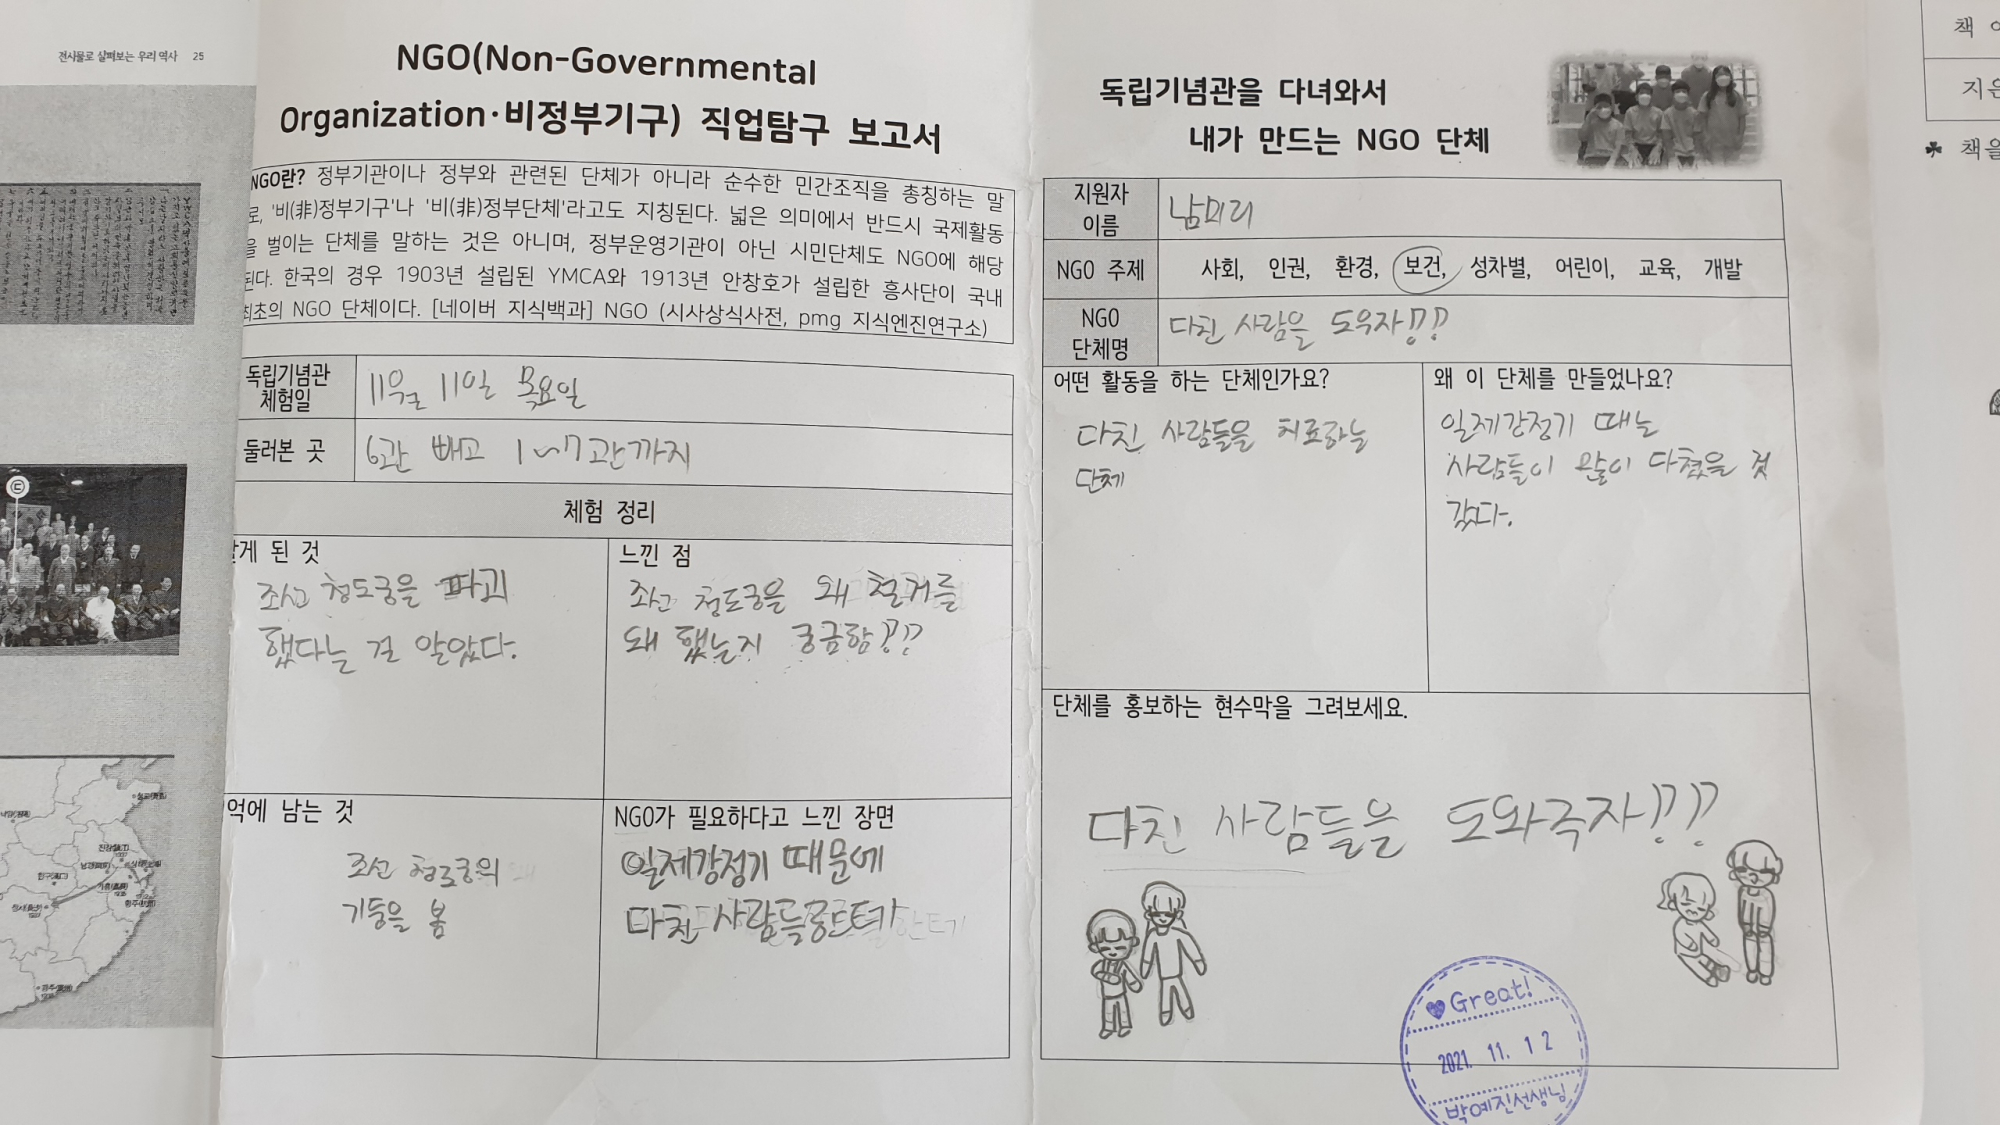 전시물로 살펴보는 우리 역사 25
NGO(Non-Governmental
Organization·비정부기구) 직업탐구 보고서
NGO란? 정부기관이나 정부와 관련된 단체가 아니라 순수한 민간조직을 총칭하는 말
로, '비(非)정부기구'나 '비(非)정부단체'라고도 지칭된다. 넓은 의미에서 반드시 국제활동
을 벌이는 단체를 말하는 것은 아니며, 정부운영기관이 아닌 시민단체도 NGO에 해당
된다. 한국의 경우 1903년 설립된 YMCA와 1913년 안창호가 설립한 흥사단이 국내
최초의 NGO 단체이다. [네이버 지식백과] NGO (시사상식사전, pmg 지식엔진연구소)
독립기념관
체험일
11월 11일 목요일
둘러본 곳
6관 빼고 1~7관까지
체험 정리
게 된 것
조선 청도궁을 파괴
했다는 걸 알았다.
느낀 점
조선 청도궁을 왜 철거를
왜 했는지 궁금함!!!
억에 남는 것
조선 청도궁의
기둥을 봄
NGO가 필요하다고 느낀 장면
일제강점기 때문에
다친 사람들
독립기념관을 다녀와서
내가 만드는 NGO 단체
지원자
이름
남미리
NGO 주제
사회, 인권, 환경, 보건, 성차별, 어린이, 교육, 개발
NGO
단체명
다친 사람을 도우자!!!
어떤 활동을 하는 단체인가요?
다친 사람들을 치료하는
단체
왜 이 단체를 만들었나요?
일제강점기 때는
사람들이 많이 다쳤을 것
같다.
단체를 홍보하는 현수막을 그려보세요.
다친 사람들을 도와주자!!!
Great!
2021. 11. 12
박예진선생님
책
지은
책을
©